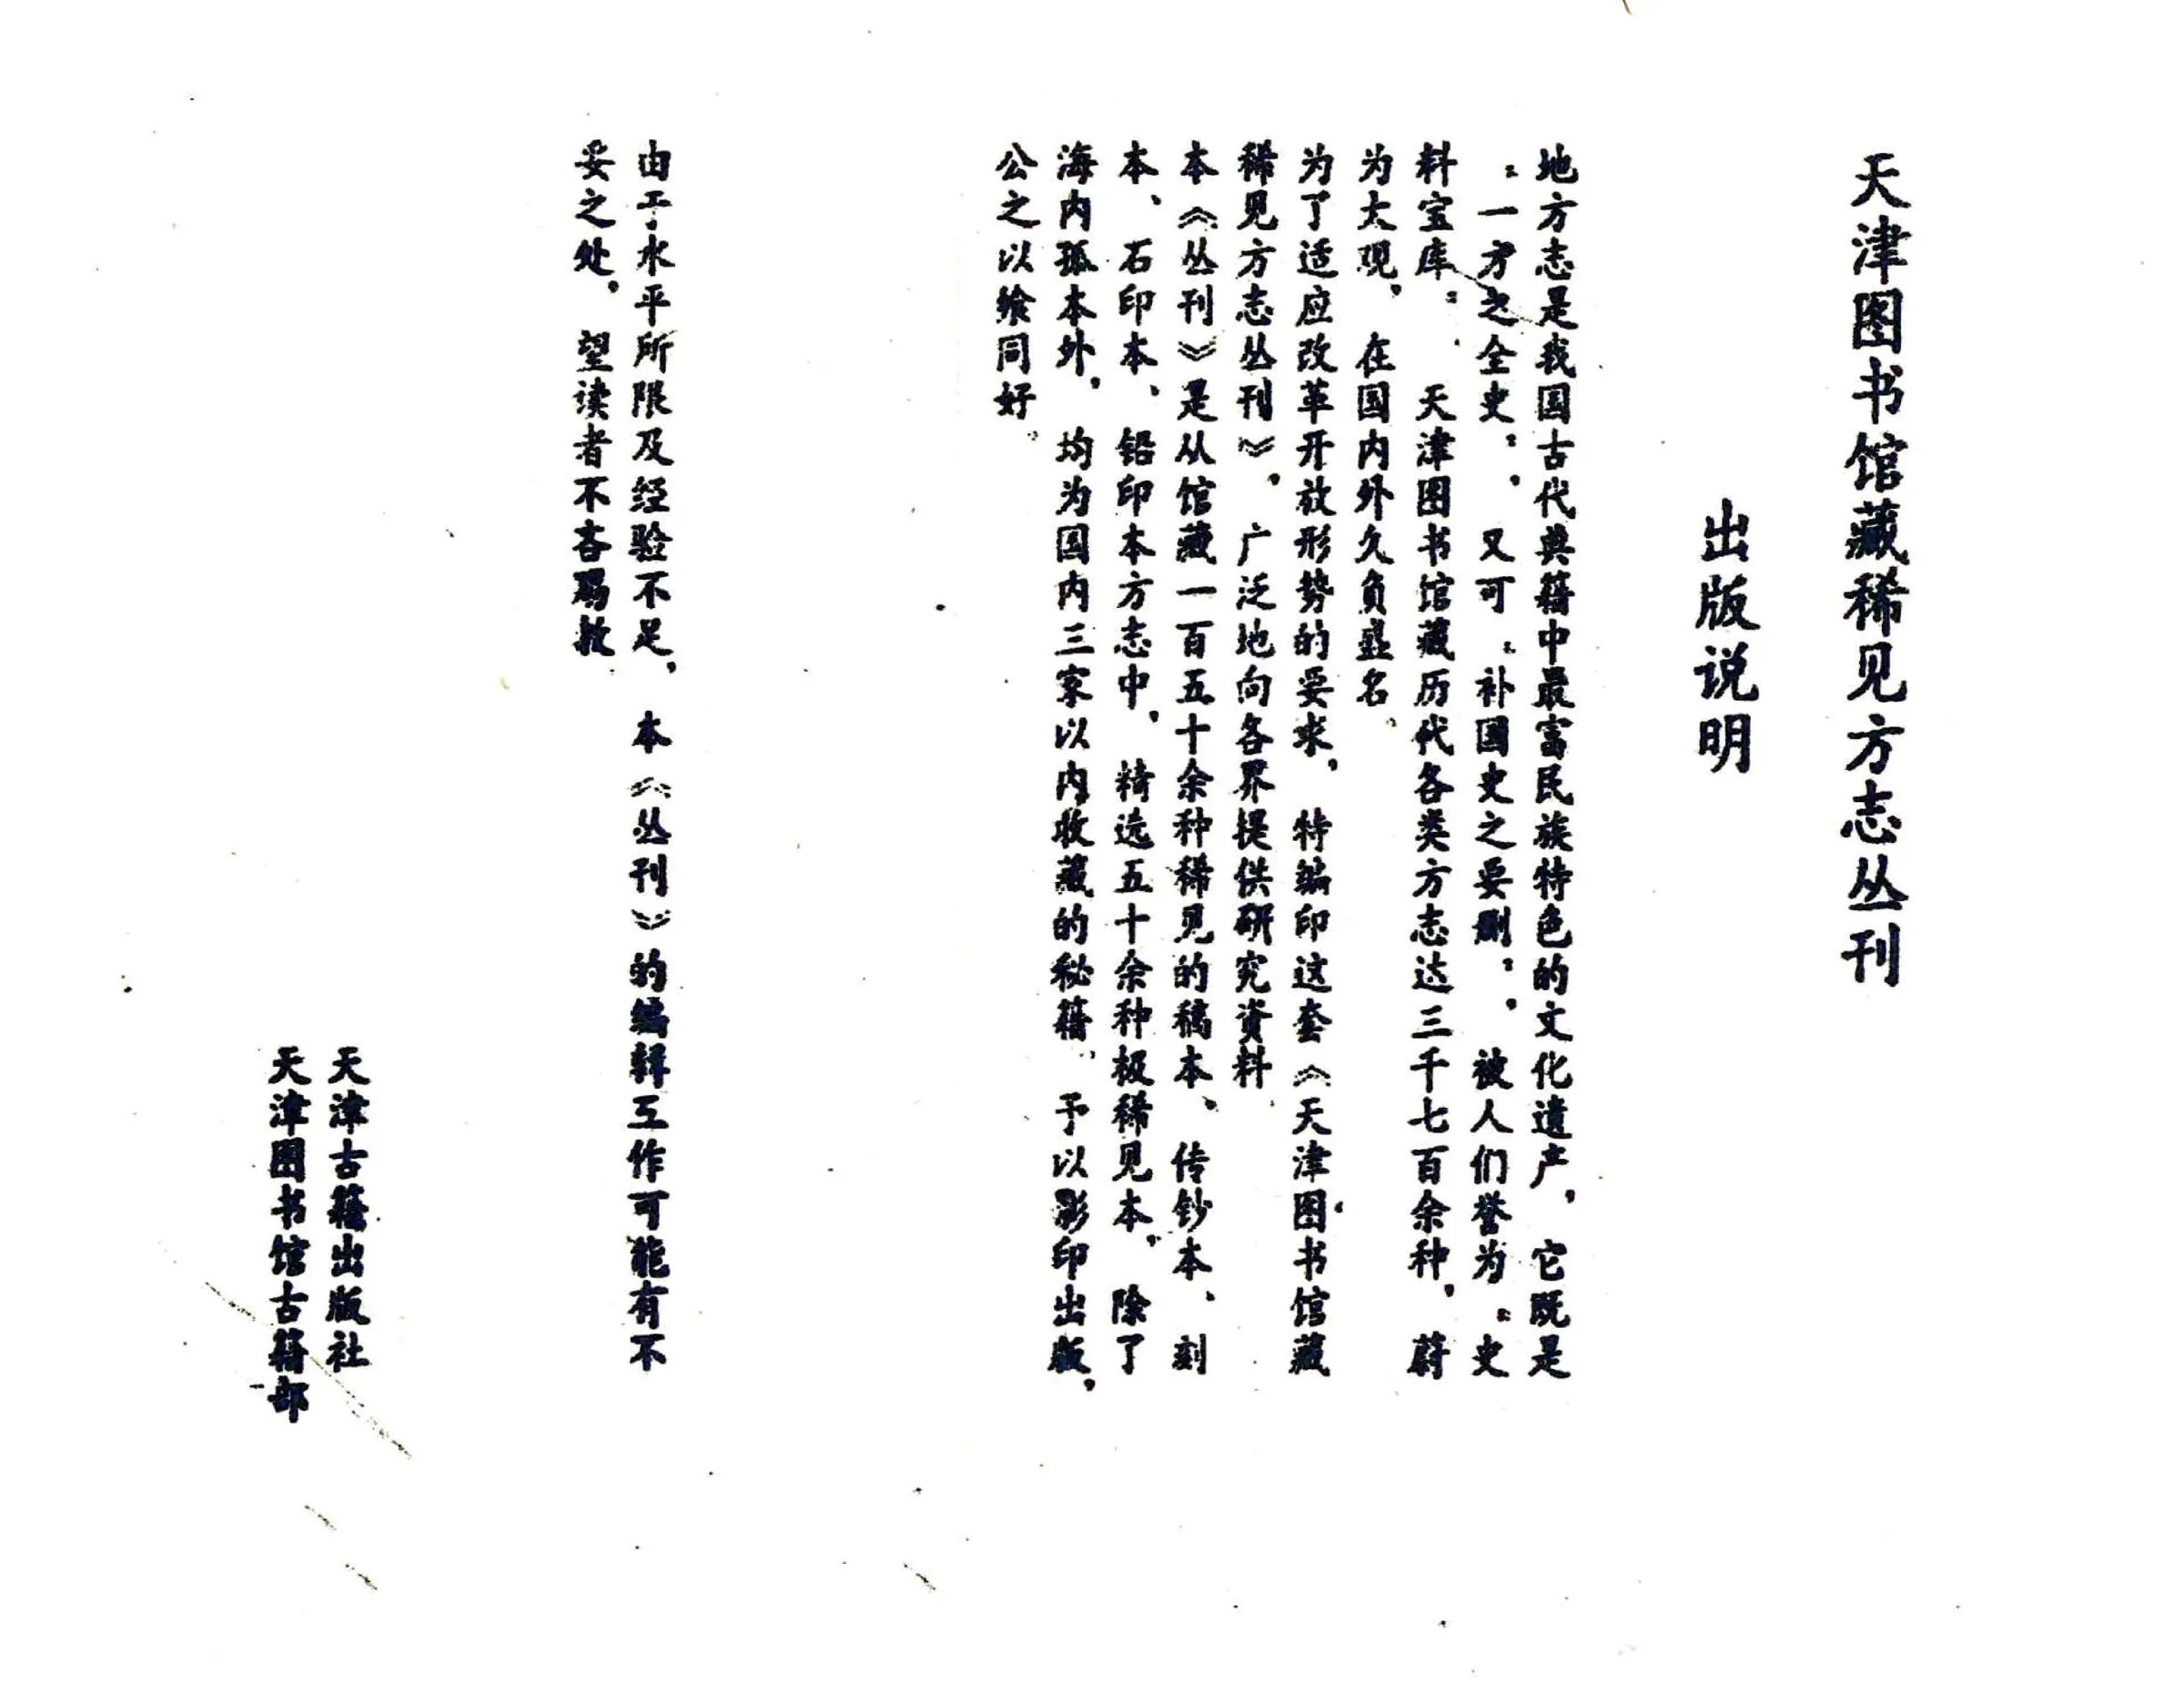 天津图书馆藏稀见方志丛刊
出版说明
地方志是我国古代典籍中最富民族特色的文化遗产，它既是
“一方之全史”，又可“补国史之要删”，被人们誉为“史
料宝库”。天津图书馆藏历代各类方志达三千七百余种，蔚
为大观，在国内外久负盛名。
为了适应改革开放形势的要求，特编印这套《天津图书馆藏
稀见方志丛刊》，广泛地向各界提供研究资料。
本《丛刊》是从馆藏一百五十余种稀见的稿本、传钞本、刻
本、石印本、铅印本方志中，精选五十余种极稀见本，除了
海内孤本外，均为国内三家以内收藏的秘籍，予以影印出版，
公之以飨同好。
由于水平所限及经验不足，本《丛刊》的编辑工作可能有不
妥之处，望读者不吝赐教
天津古籍出版社
天津图书馆古籍部